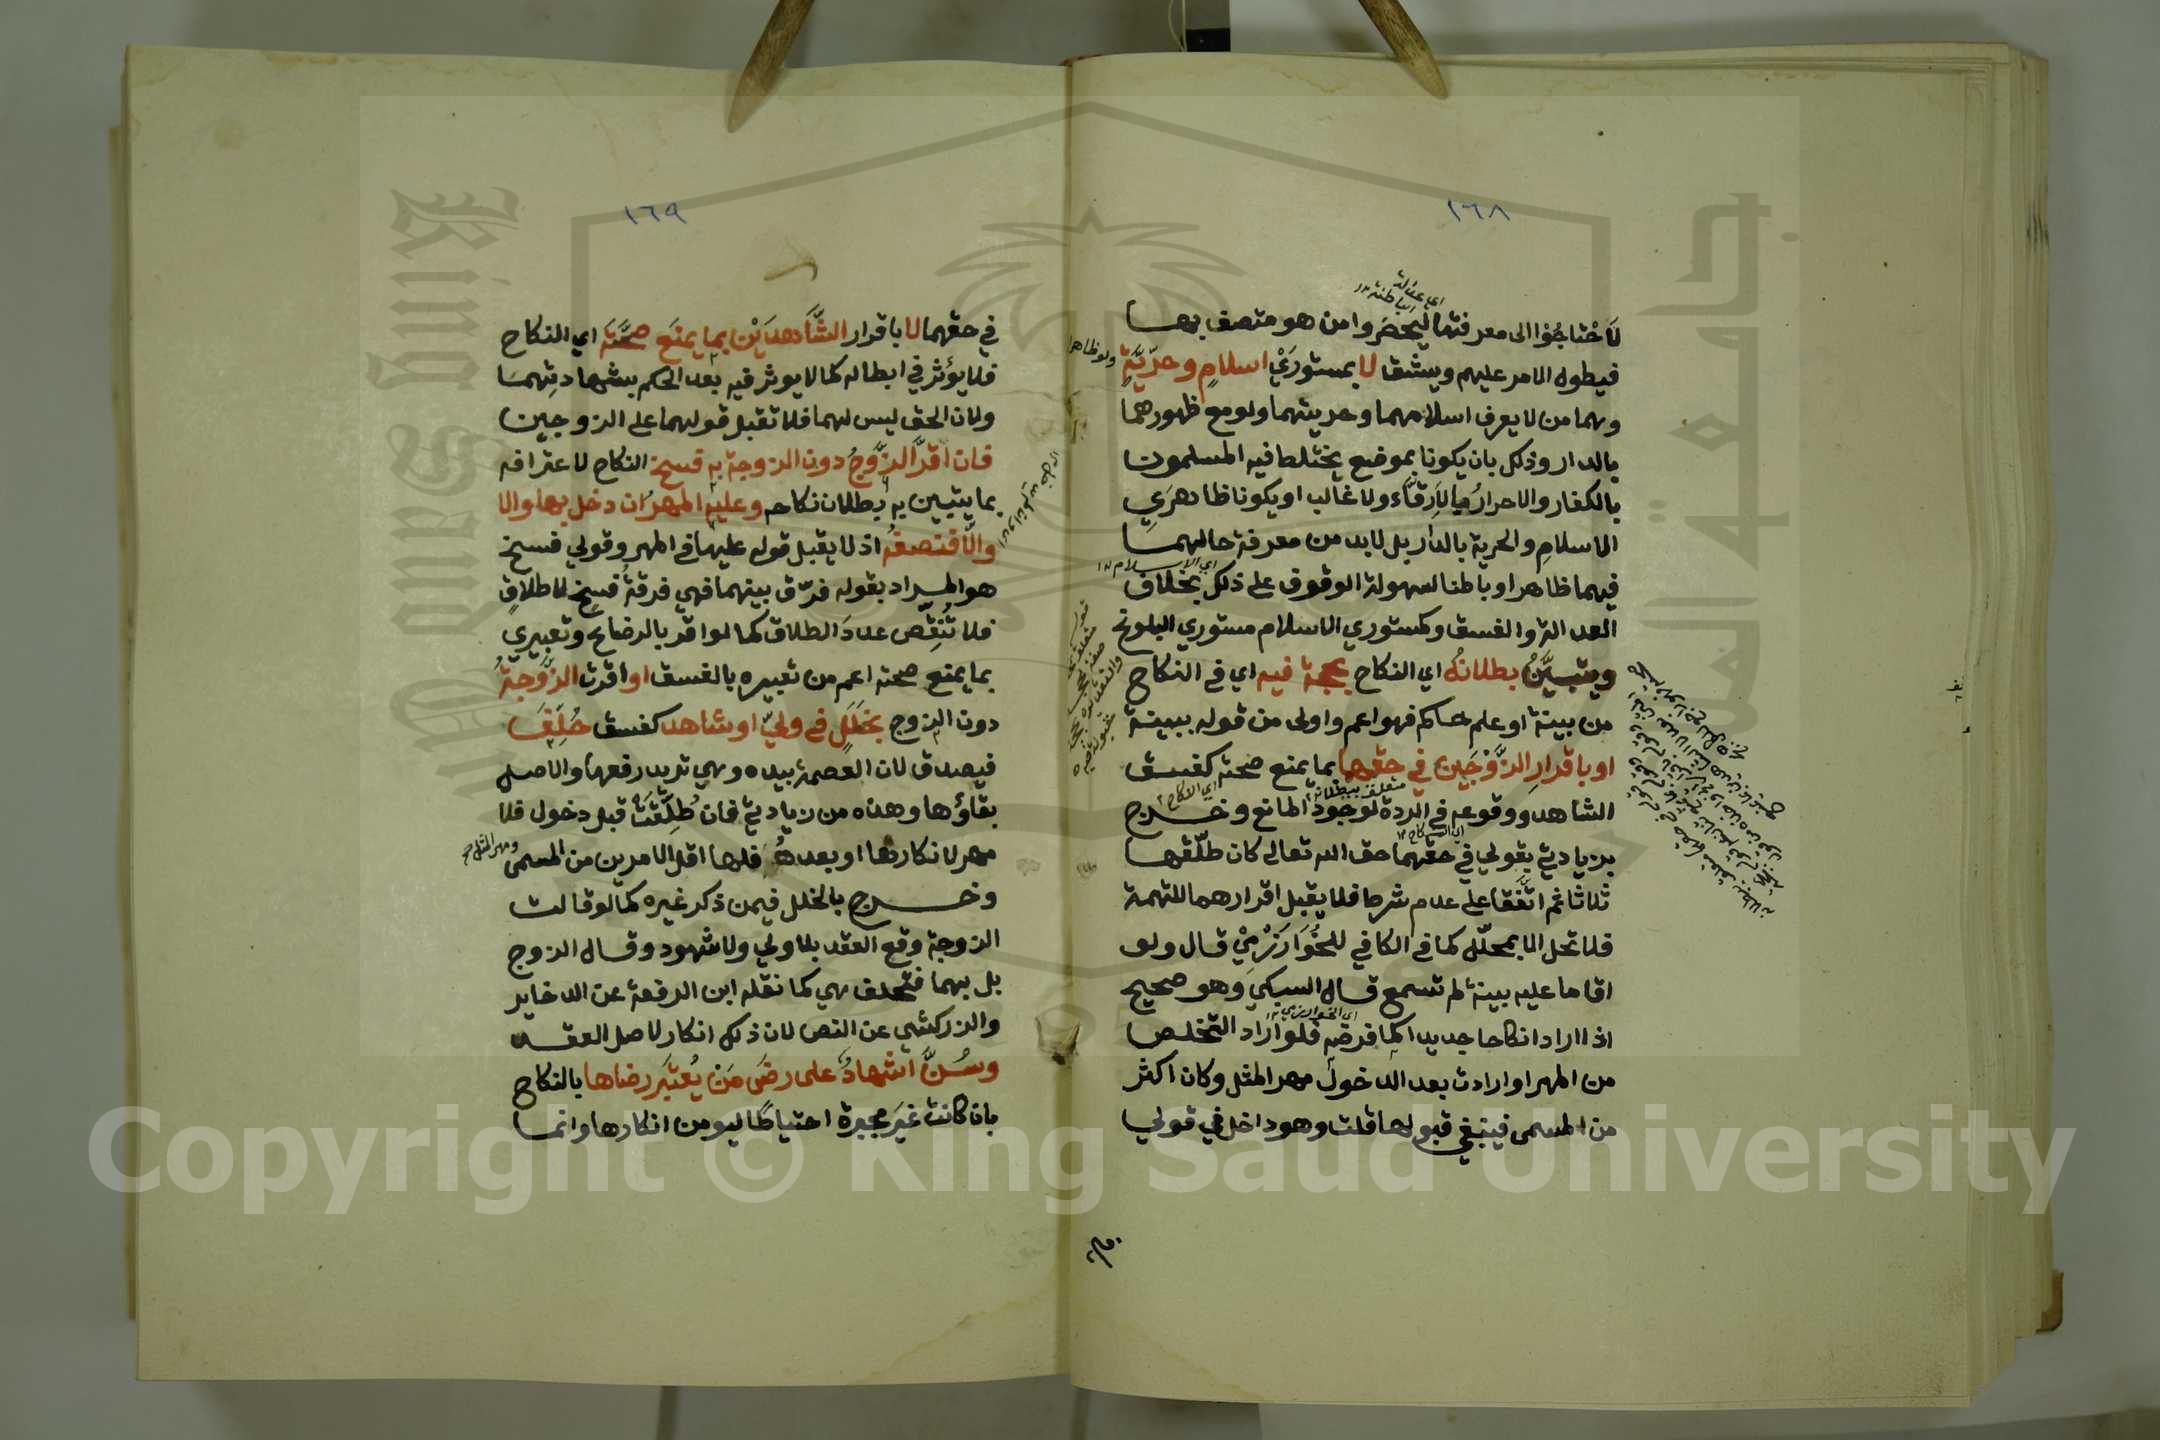 ١٦٨
لاحتاجوا الى معرفتها ليحضروا من هو متصف بها
اي عدالة
الباطنة ١٢
فيطول الامر عليهم ويشق لا بمستوري اسلامٍ وحرّيّةٍ
ولو ظاهر
وهما من لا يعرف اسلامهما وحريتهما ولو مع ظهورهما
بالدار وذلك بان يكونا بموضع يختلط فيه المسلمون
بالكفار والاحرارُ بالارقّاء ولا غالب او يكونا ظاهرَي
الاسلامِ والحرية بالدار بل لا بد من معرفة حالهما
فيهما ظاهرا وباطنا لسهولة الوقوف على ذلك بخلاف
اي الاسلام ١٢
العدالة والفسق وكمستوري الاسلام مستوري البلوغ
ويتبيَّنُ بطلانُه اي النكاح بحجة فيه اي في النكاح
من بينة او علم حاكم فهو اعم واولى من قوله ببينة
او باقرارِ الزَّوْجَينِ في حقهما بما يمنع صحته كفسق
متعلق ببطلانه
اي النكاح
الشاهد ووقوعه في الردة لوجود المانع وخرج
بزيادتي بقولي في حقهما حق الله تعالى كان طلّقها
ثلاثا ثم اتَّفقا على عدم شرط فلا يقبل اقرارهما للتهمة
فلا تحل الا بمحلّل كما في الكافي للخُوَارَزْمِيْ قال ولو
اقاما عليه بينة لم تسمع قال السبكي وهو صحيح
اي الخوارزمي ١٢
اذا ارادا نكاحا جديدا كما فرضه فلو اراد التخلص
من المهر او ارادت بعد الدخول مهر المثل وكان اكثر
من المسمى فينبغي قبولها قلت وهو داخل في قولي
١٦٩
في حقهما لا باقرار الشَّاهدَيْن بما يمنَع صحَّتَه اي النكاح
فلا يؤثر في ابطاله كما لا يوثر فيه بعد الحكم بشهادتِهما
ولان الحق ليس لهما فلا تقبل قولهما على الزوجين
فان اقرَّ الزَّوجُ دون الزوجة به فسخ النكاح لاعترافه
بما يتبين به بطلان نكاحه وعليه المهرُ ان دخل بها والا
والّا فنصفُه اذ لا يقبل قوله عليها في المهر وقولي فسخ
هو المراد بقوله فرّق بينهما فهي فرقةُ فسخٍ لا طلاقٍ
فلا تُنَقِّص عددَ الطلاق كما لو اقر بالرضاع وتعبيري
بما يمنع صحته اعم من تعبيره بالفسق او أقرت الزَّوجةُ
دون الزوج بخَلَلٍ في وليّ او شاهد كفسق حُلِّفَ
فيصدق لان العصمة بيده وهي تريد رفعها والاصل
بقاؤها وهذه من زيادتي فان طُلِّقَتْ قبل دخول فلا
مهر لانكارها او بعدهُ فلها اقل الامرين من المسمى
ومهر المثل صح
وخرج بالخلل فيمن ذكر غيره كما لو قالت
الزوجة وقع العقد بلا ولي ولا شهود وقال الزوج
بل بهما فتحلف هي كما نقله ابن الرفعة عن الدخاير
والزركشي عن النص لان ذلك انكار لاصل العقد
وسُنَّ اشهادٌ على رضَى مَنْ يُعتبَر رضاها بالنكاح
بان كانت غيرَ مجبرة احتياطا ليومن انكارها وانما